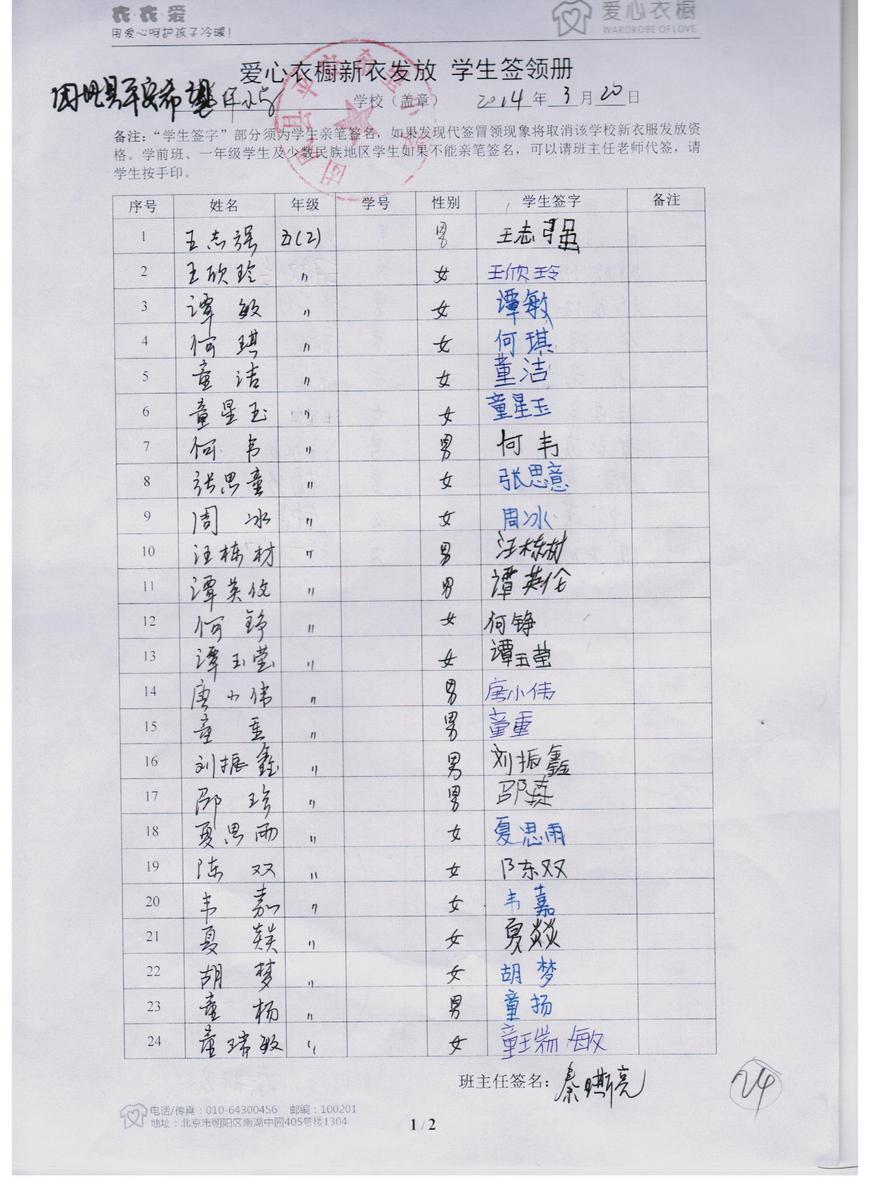 衣·衣·爱
用爱心呵护孩子冷暖!
爱心衣橱
WARDROBE OF LOVE
爱心衣橱新衣发放 学生签领册
学校（盖章） 2014年3月20日
备注：“学生签字”部分须为学生亲笔签名，如果发现代签冒领现象将取消该学校新衣服发放资
格。学前班、一年级学生及少数民族地区学生如果不能亲笔签名，可以请班主任老师代签，请
学生按手印。
序号 姓名 年级 学号 性别 学生签字 备注
1 王志强 五(2) 男 王志强
2 王欣玲 〃 女 王欣玲
3 谭敏 〃 女 谭敏
4 何琪 〃 女 何琪
5 童洁 〃 女 童洁
6 童星玉 〃 女 童星玉
7 何韦 〃 男 何韦
8 张思童 〃 女 张思意
9 周冰 〃 女 周冰
10 汪栋材 〃 男 汪栋树
11 谭英 〃 男 谭英伦
12 何铮 〃 女 何铮
13 谭玉莹 〃 女 谭玉莹
14 唐小伟 〃 男 唐小伟
15 童 〃 男 童重
16 刘振鑫 〃 男 刘振鑫
17 邵珍 〃 男 邵
18 夏思雨 〃 女 夏思雨
19 陈双 〃 女 陈双
20 韦嘉 〃 女 韦嘉
21 夏燚 〃 女 夏燚
22 胡梦 〃 女 胡梦
23 童杨 〃 男 童扬
24 童瑞敏 〃 女 童瑞敏
班主任签名：秦
24
电话/传真：010-64300456 邮编：100201
地址：北京市朝阳区南湖中园405号楼1304
1 / 2